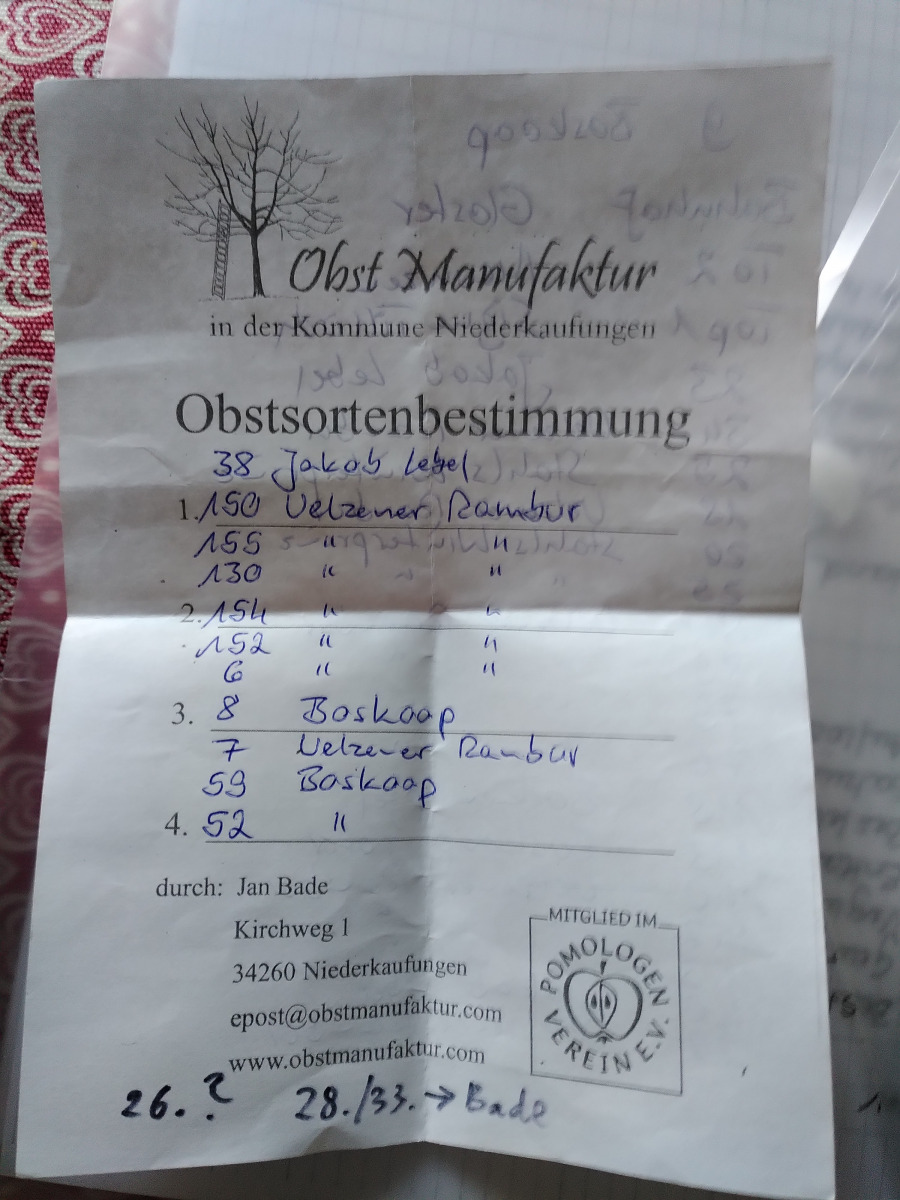 Obst Manufaktur
in der Kommune Niederkaufungen
Obstsortenbestimmung
38 Jakob Lebel
1. 150 Uelzener Rambur
155 " "
130 " "
2. 154 " "
152 " "
6 " "
3. 8 Boskoop
7 Uelzener Rambur
59 Boskoop
4. 52 "
durch: Jan Bade
Kirchweg 1
34260 Niederkaufungen
epost@obstmanufaktur.com
www.obstmanufaktur.com
MITGLIED IM
POMOLOGEN
VEREIN E.V.
26. ? 28./33. → Bade